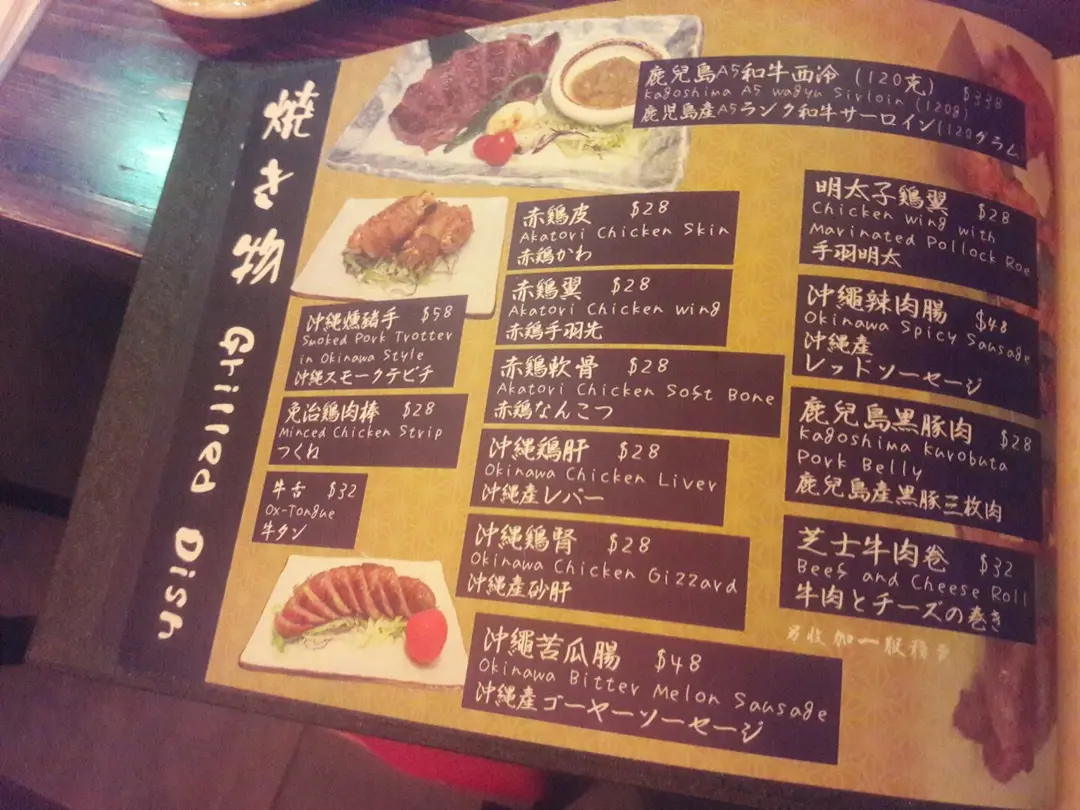 焼き物 Grilled Dish
鹿兒島A5和牛西冷 (120克) $338
Kagoshima A5 Wagyu Sirloin (120g)
鹿児島産A5ランク和牛サーロイン(120グラム
沖縄燻豬手 $58
Smoked Pork Trotter
in Okinawa Style
沖縄スモークテビチ
免治鶏肉棒 $28
Minced Chicken Strip
つくね
牛舌 $32
Ox-Tongue
牛タン
赤鶏皮 $28
Akatori Chicken Skin
赤鶏かわ
赤鶏翼 $28
Akatori Chicken wing
赤鶏手羽先
赤鶏軟骨 $28
Akatori Chicken Soft Bone
赤鶏なんこつ
沖縄鶏肝 $28
Okinawa Chicken Liver
沖縄産レバー
沖縄鶏腎 $28
Okinawa Chicken Gizzard
沖縄産砂肝
沖繩苦瓜腸 $48
Okinawa Bitter Melon Sausage
沖縄産ゴーヤーソーセージ
明太子鶏翼 $28
Chicken wing with
Marinated Pollock Roe
手羽明太
沖繩辣肉腸 $48
Okinawa Spicy Sausage
沖縄産
レッドソーセージ
鹿兒島黒豚肉 $28
Kagoshima Kurobuta
Pork Belly
鹿児島産黒豚三枚肉
芝士牛肉卷 $32
Beef and Cheese Roll
牛肉とチーズの巻き
另收加一服務費